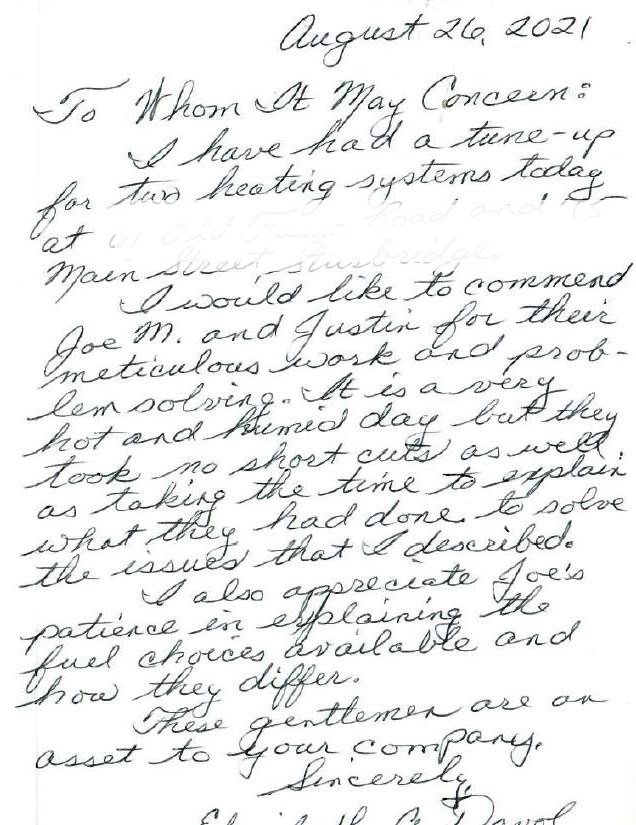 August 26, 2021
To Whom It May Concern:
I have had a tune-up
for two heating systems today
at Road and
Main Street, Sturbridge.
I would like to commend
Joe M. and Justin for their
meticulous work and prob-
lem solving. It is a very
hot and humid day but they
took no short cuts as well
as taking the time to explain
what they had done to solve
the issues that I described.
I also appreciate Joe's
patience in explaining the
fuel choices available and
how they differ.
These gentlemen are an
asset to your company.
Sincerely,